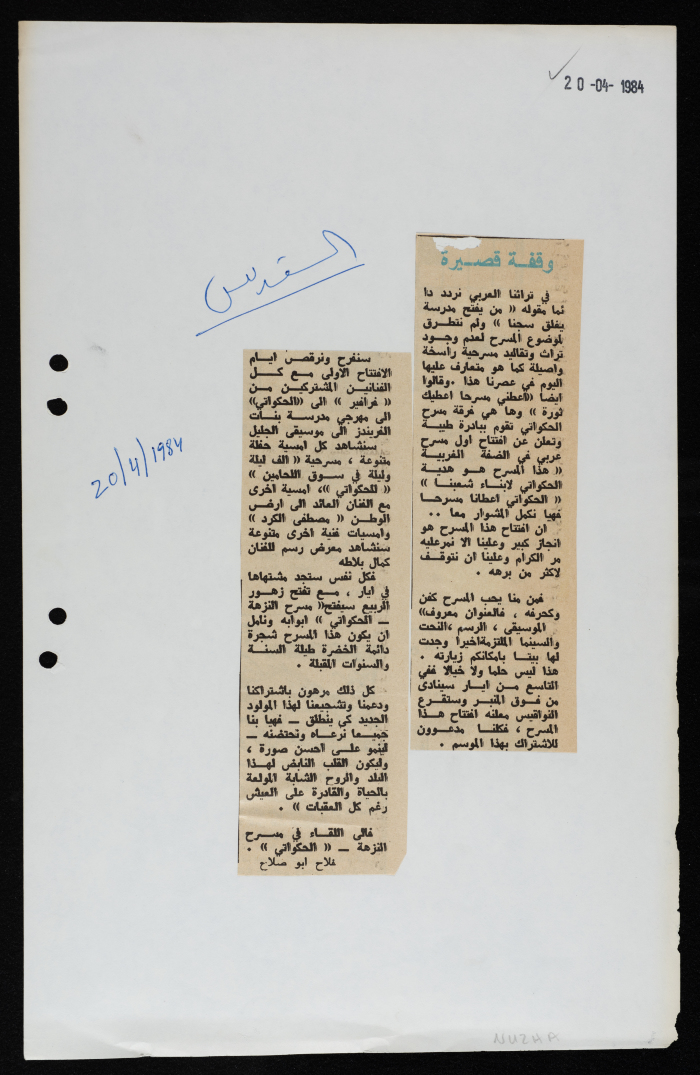 20-04-1984
القدس
20/4/1984
وقفة قصيرة
في تراثنا العربي نردد دا
ئما مقوله « من يفتح مدرسة
يغلق سجنا » ولم نتطرق
لموضوع المسرح لعدم وجود
تراث وتقاليد مسرحية راسخة
واصيلة كما هو متعارف عليها
اليوم في عصرنا هذا .وقالوا
ايضا «اعطني مسرحا اعطيك
ثورة » وها هي فرقة مسرح
الحكواتي تقوم ببادرة طيبة
وتعلن عن افتتاح اول مسرح
عربي في الضفة الغربية
« هذا المسرح هو هدية
الحكواتي لابناء شعبنا »
« الحكواتي اعطانا مسرحا
فهيا نكمل المشوار معا ..
ان افتتاح هذا المسرح هو
انجاز كبير وعلينا الا نمرعليه
مر الكرام وعلينا ان نتوقف
لاكثر من برهه .
فمن منا يحب المسرح كفن
وكحرفه ، فالعنوان معروف»
الموسيقى ، الرسم ،النحت
والسينما الملتزمةاخيرا وجدت
لها بيتا بامكانكم زيارته .
هذا ليس حلما ولا خيالا ففي
التاسع من ايار سينادى
من فوق المنبر وستقرع
النواقيس معلنه افتتاح هذا
المسرح ، فكلنا مدعوون
للاشتراك بهذا الموسم .
سنفرح ونرقص ايام
الافتتاح الاولى مع كل
الفنانين المشتركين من
« غرافير » الى «الحكواتي»
الى مهرجي مدرسة بنات
الفريندز الى موسيقى الجليل
سنشاهد كل امسية حفلة
متنوعة ، مسرحية « الف ليلة
وليلة في سوق اللحامين »
« للحكواتي »، امسية اخرى
مع الفنان العائد الى ارض
الوطن « مصطفى الكرد »
وامسيات فنية اخرى متنوعة
سنشاهد معرض رسم للفنان
كمال بلاطه
فكل نفس ستجد مشتهاها
في ايار ، مع تفتح زهور
الربيع سيفتح« مسرح النزهة
ــ الحكواتي » ابوابه ونامل
ان يكون هذا المسرح شجرة
دائمة الخضرة طيلة السنة
والسنوات المقبلة .
كل ذلك مرهون باشتراكنا
ودعمنا وتشجيعنا لهذا المولود
الجديد كي ينطلق ــ فهيا بنا
جميعا نرعاه ونحتضنه ــ
لينمو على احسن صورة ،
وليكون القلب النابض لهذا
البلد والروح الشابة المولعة
بالحياة والقادرة على العيش
رغم كل العقبات » .
فالى اللقاء في مسرح
النزهة ــ « الحكواتي » .
فلاح ابو صلاح
NUZHA